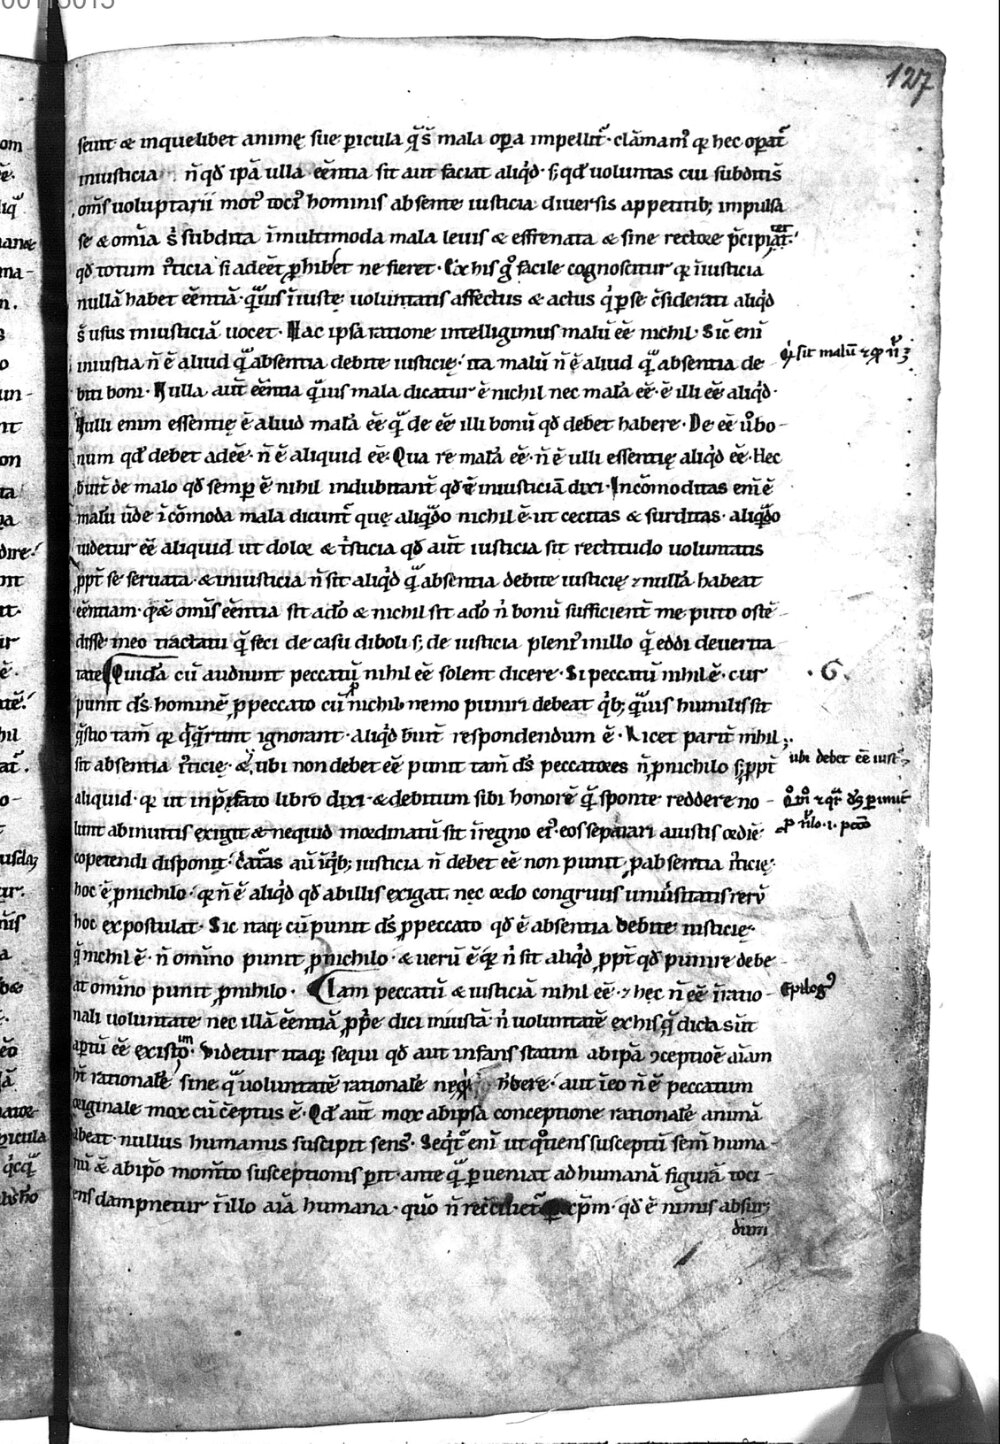 127
seuit ⁊ inquelibet animę sue ꝑicula q̄s̄ mala oꝑa impellit᷑· clāmam᷒ qꝛ hec oꝑat᷑
iniusticia n̄ qđ ipā ulla eēntia sit aut faciat aliqđ· s; qđ uoluntas cui subditi s̄
om̄s uoluptarii mot᷒ toci᷒ hominis absente iusticia diuersis appetitib; impulsa
se ⁊ om̄ia s̄ subdita ī multimoda mala leuis ⁊ effrenata ⁊ sine rectore p̄cipitat·
qđ totum ı᷒ticia si adeēt ꝓhibet ne fieret· Ex his g᷒ facile cognoscitur qꝛ īiusticia
nullā habet eēntiā· quis īiustę uoluntatis affectus ⁊ actus q ꝑ se c̄siderati aliqđ
s̄ usus iniusticiā uocet· Hac ipsa ratione intelligimus malū eē nichil· Sic enī
iniustia n̄ ē aliud q̄ absentia debite iusticię· ita malū n̄ ē aliud q̄ absentia de
biti boni· Nulla aut̄ eēntia q̄uis mala dicatur ē nichil nec malā eē· ē illi eē aliqđ·
Nulli enim essentię ē aliud malā eē q̄ de eē illi bonū qđ debet habere· De eē ū bo-
num qđ debet adeē· n̄ ē aliquid eē· Qua re malā eē· n̄ ē ulli essentię aliqđ eē· Hec
buit̄ de malo qđ semꝑ ē nihil indubitant̄ qđ ē iniusticiā dixi· Incōmoditas enī ē
malū ūde īcōmoda mala dicunt᷑ quę aliqn̄do nichil ē· ut cecitas ⁊ surditas· aliqn̄do
uidetur eē aliquid ut dolor ⁊ t᷑sticia qđ aut̄ iusticia sit rectitudo uoluntatis
ꝓpt᷑ se seruata· ⁊ iniusticia n̄ sit aliqđ q̄ absentia debite iusticię ⁊ nullā habeat
eēntiam· qꝛ ⁊ om̄is eēntia sit a dō ⁊ nichil sit a dō n̄ bonū sufficient᷑ me puto ostē-
disse meo tractatu q̄ feci de casu diboli s; de iusticia pleni᷒ in illo q̄ eddi de uerita
tate Quidā cū audiunt peccatū nihil eē solent dicere· Si peccatū nihil ē· cur
punit ds̄ hominē ꝓ peccato cū ꝓ nichilo nemo puniri debeat qb; q̄uis humilis sit
q̄stio tam̄ qꝛ qđ q̄runt ignorant· aliqđ bīuit̄ respondendum ē· Licet parit᷑ nihil
sit absentia ı᷒ticię· ⁊ ubi non debet eē punit tam̄ ds̄ peccatores n̄ ꝓ nichilo s; ꝓpt᷑
aliquid· qꝛ ut in p̄fato libro dixi· ⁊ debitum sibi honorē q̄ sponte reddere no-
lunt ab inuitis exigit ⁊ ne quid inordinatū sit ī regno ei᷒· eos separari a iustis ordīe
copetendi disponit· c̄aturas aū ī qb; iusticia n̄ debet eē non punit· ꝑ absentia ı᷒ticię·
hoc ē ꝓ nichilo· qꝛ n̄ ē aliqđ qđ ab illis exigat· nec ordo congruus uniu᷒sitatis rerū
hoc expostulat· Sic naqꝫ cū punit ds̄ ꝓ peccato qđ ē absentia debite iusticię·
q̄ nichil ē· n̄ om̄ino punit ꝓ nichilo· ⁊ uerū ē qꝛ n̄ sit aliqđ ꝓpt᷑ qđ punire debe-
at om̄ino punit ꝓ nihilo· Iam peccatū ⁊ iusticiā nihil eē· ⁊ hęc n̄ eē ī ratio-
nali uoluntate nec illā eēntiā ꝓꝑe dici iniustā n̄ uoluntatē ex his q̄ dicta sūt
aꝑtū eē existimo· Videtur itaqꝫ sequi qđ aut infans statim ab ipā ꝯceptiōe aīam
h̄t rationalē sine q̄ uoluntatē rationalē h̄bere· aut īeo n̄ ē peccatum
originale mox cū c̄ceptus ē· Qđ aut̄ mox ab ipsa conceptione rationalē animā
habeat· nullus humanus suscipit sens᷒· Seqit᷑ enī ut quotiens susceptū sem̄ huma-
nū ⁊ ab ipō mom̄to susceptionis ꝑit· ante q̄ ꝑueniat ad humanā figurā toci-
ens dampnetur ī illo aīa humana· quō n̄ reccilietur ꝑ xp̄m· qđ ē nimis absur-
dum
sit malū ⁊ qꝛ n̄
·6·
ubi debet eē iust
Qm̄ ⁊ qr ds̄ punit
ꝓ n̄lo·i· pccō
Epilog᷒